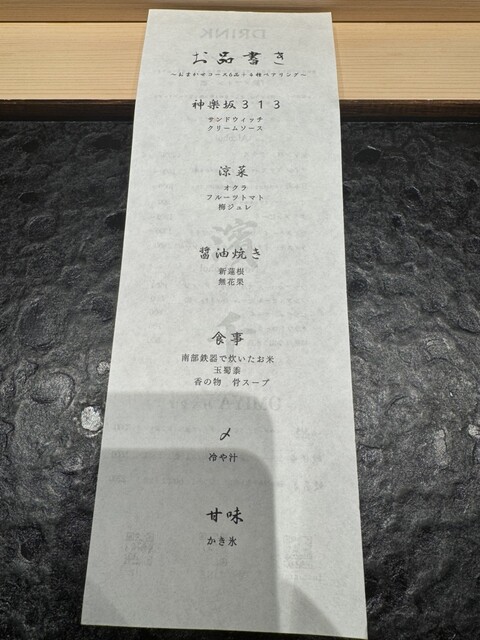 お品書き
～おまかせコース6品＋6種ペアリング～
神楽坂３１３
サンドウィッチ
クリームソース
涼菜
オクラ
フルーツトマト
梅ジュレ
醤油焼き
新蓮根
無花果
食事
南部鉄器で炊いたお米
玉蜀黍
香の物　骨スープ
〆
冷や汁
甘味
かき氷